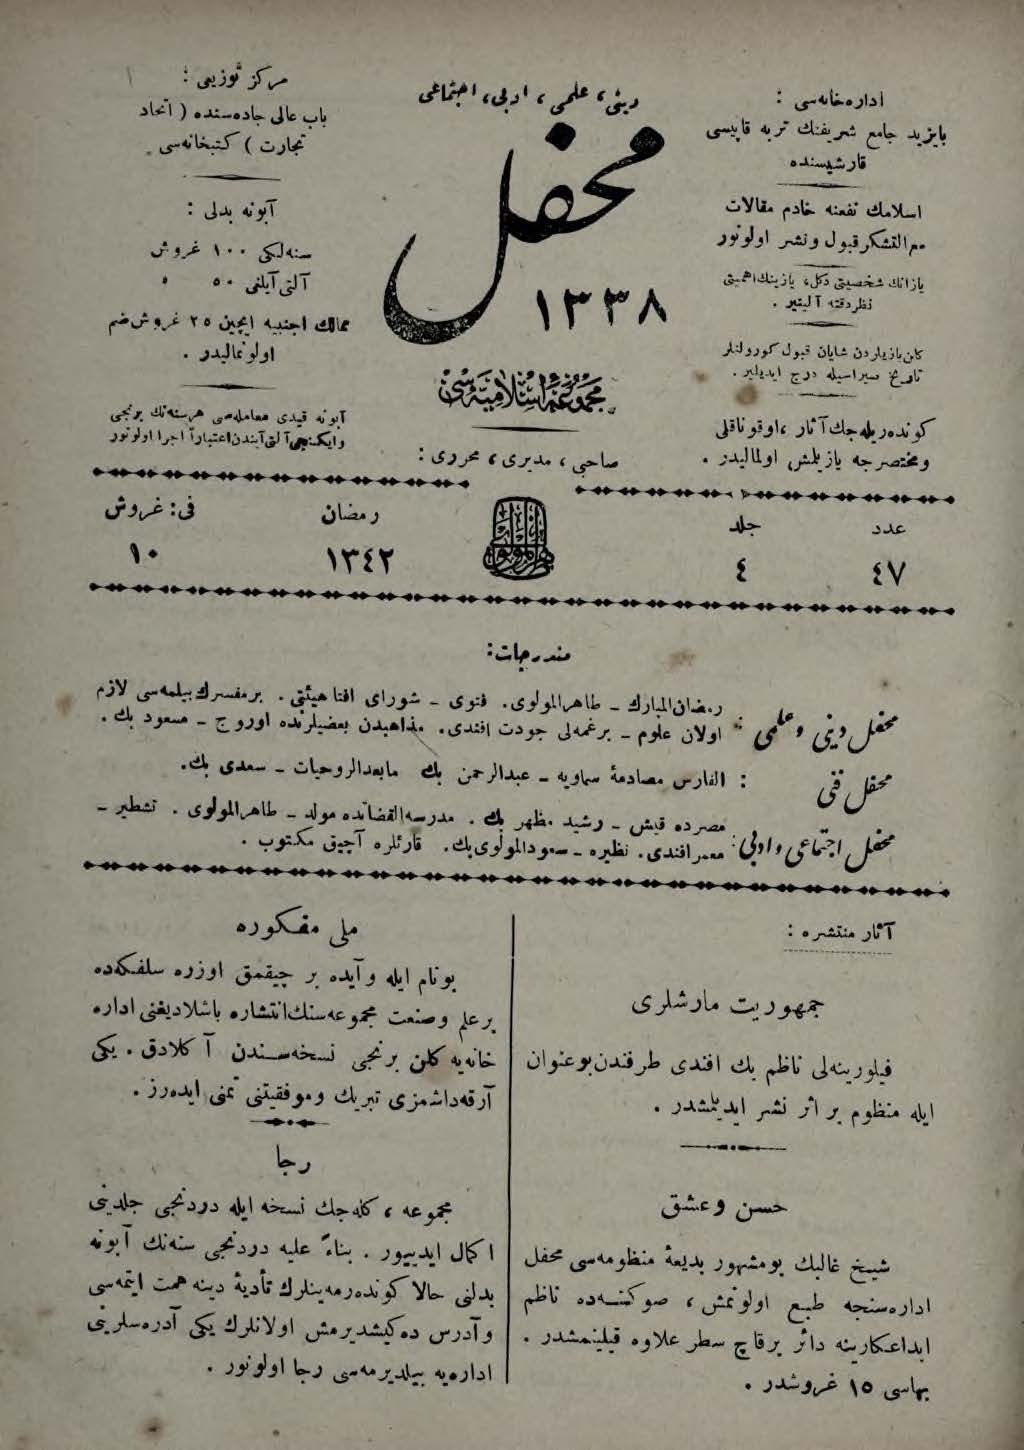 اداره‌خانه‌سی :
بایزید جامع شریفنك تربه قاپیسی
قارشیسنده
اسلامك نفعنه خادم مقالات
مع‌التشكر قبول ونشر اولونور
یازانك شخصیتی دكل، یازینك اهمیتی
نظر دقته آلینیر .
كلن یازیلردن شایان قبول كورولنلر
تاریخ سیراسیله درج ایدیلیر .
كونده‌ریله‌جك آثار ، اوقوناقلی
ومختصرجه یازیلمش اولمالیدر .
دینی، علمی ، ادبی ، اجتماعی
محفل
١٣٣٨
مجموعهٔ اسلامیه‌سی
صاحبی ، مدیری ، محرری :
مركز توزیعی :
باب عالی جاده‌سنده ( اتحاد
تجارت ) كتبخانه‌سی .
آبونه بدلی :
سنه‌لكی ١٠٠ غروش
آلتی آیلغی ٥٠ »
ممالك اجنبیه ایچین ٢٥ غروش ضم
اولونمالیدر .
آبونه قیدی معامله‌سی هر سنه‌نك برنجی
وایكنجی آلتی آیندن اعتباراً اجرا اولونور
عدد
٤٧
جلد
٤
رمضان
١٣٤٢
فی : غروش
١٠
مندرجات :
محفل دینی و علمی : رمضان المبارك ـ طاهرالمولوی. فتوی ـ شورای افتا هیئتی . بر مفسرك بیلمه‌سی لازم
اولان علوم ـ برغمه‌لی جودت افندی. مذاهبدن بعضیلرنده اوروج ـ مسعود بك .
محفل فنی : الفارس مصادمهٔ سماویه ـ عبدالرحمن بك مابعدالروحیات ـ سعدی بك.
محفل اجتماعی وادبی : مصرده قیش ـ رشید مظهر بك . مدرسةالقضاتده مولد ـ طاهرالمولوی . تشطیر ـ
معمر افندی. نظیره ـ سعودالمولوی بك. قارئلره آچیق مكتوب .
آثار منتشره :
جمهوریت مارشلری
فیلورینه‌لی ناظم بك افندی طرفندن بو عنوان
ایله منظوم بر اثر نشر ایدیلمشدر .
حسن و عشق
شیخ غالبك بو مشهور بدیعهٔ منظومه‌سی محفل
اداره‌سنجه طبع اولونمش ، صوكنــده ناظم
ابداعكارینه دائر برقاچ سطر علاوه قیلینمشدر .
بهاسی ١٥ غروشدر .
ملی مفكوره
بونام ایله و آیده بر چیقمق اوزره سلفكه‌ده
برعلم وصنعت مجموعه‌سنك انتشاره باشلادیغنی اداره
خانه‌یه كلن برنجی نسخه‌ســندن آكلادق . یكی
آرقه‌داشمزی تبریك وموفقیتنی تمنی ایده‌رز .
رجا
مجموعه ، كله‌جك نسخه ایله دردنجی جلدینی
اكمال ایدییور . بناءً علیه دردنجی سنه‌نك آبونه
بدلنی حالا كونده‌رمه‌ینلرك تأدیهٔ دینه همت ایتمه‌سی
وآدرس ده‌كیشدیرمش اولانلرك یكی آدره‌سلرینی
اداره‌یه بیلدیرمه‌سی رجا اولونور .